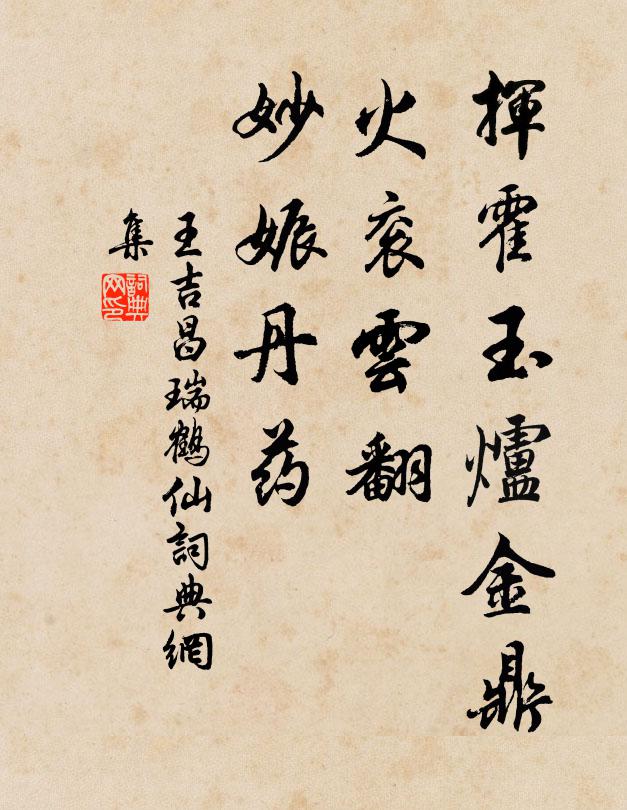 揮霍玉爐金鼎
火衮雲翻
妙娠丹药
王吉昌瑞鶴仙詞典網
集
詞典網印